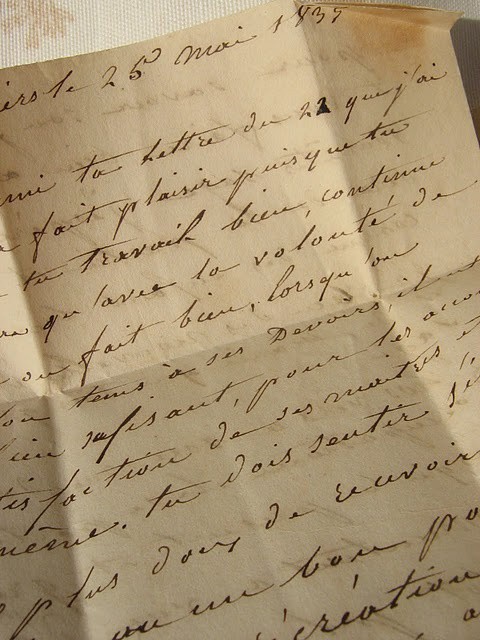 le 25 mai 1837
ta lettre du 22 que j'ai
fait plaisir puisque tu
tu travail bien, continue
qu'avec la volonté de
on fait bien, lorsqu'on
tems à ses Devoirs, il
bien sufisant, pour les
de ses maitres
même. tu dois sentir
plus doux de recevoir
ou un bon
récréation